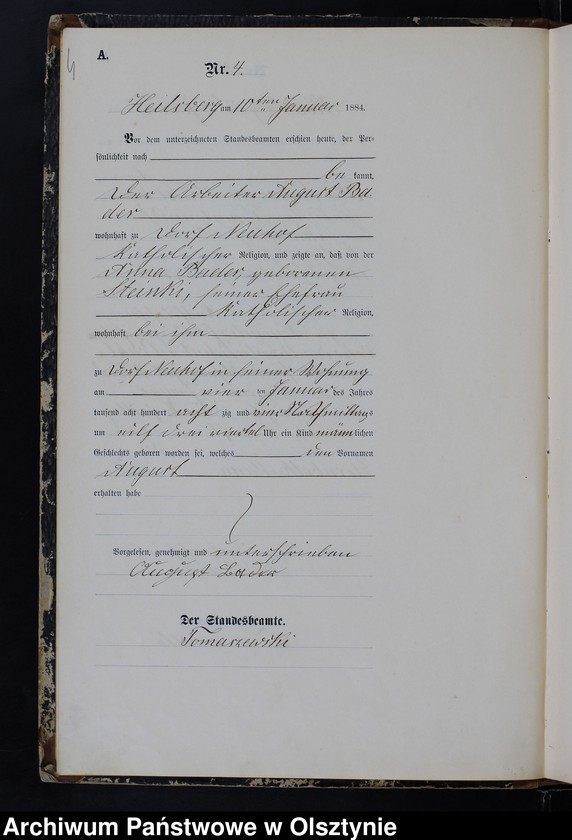 4
A.
Nr. 4.
Heilsberg am 10ten Januar 1884.
Vor dem unterzeichneten Standesbeamten erschien heute, der Per-
sönlichkeit nach
be kannt,
der Arbeiter August Ba
der
wohnhaft zu Dorf Neuhof
katholischer Religion, und zeigte an, daß von der
Anna Bader, geborenen
Steinki, seiner Ehefrau
katholischer Religion,
wohnhaft bei ihm
zu Dorf Neuhof in seiner Wohnung
am vier ten Januar des Jahres
tausend acht hundert acht zig und vier Nachmittags
um eilf drei viertel Uhr ein Kind männ lichen
Geschlechts geboren worden sei, welches den Vornamen
August
erhalten habe
Vorgelesen, genehmigt und unterschrieben
August Bader
Der Standesbeamte.
Tomaszewski
Archiwum Państwowe w Olsztynie